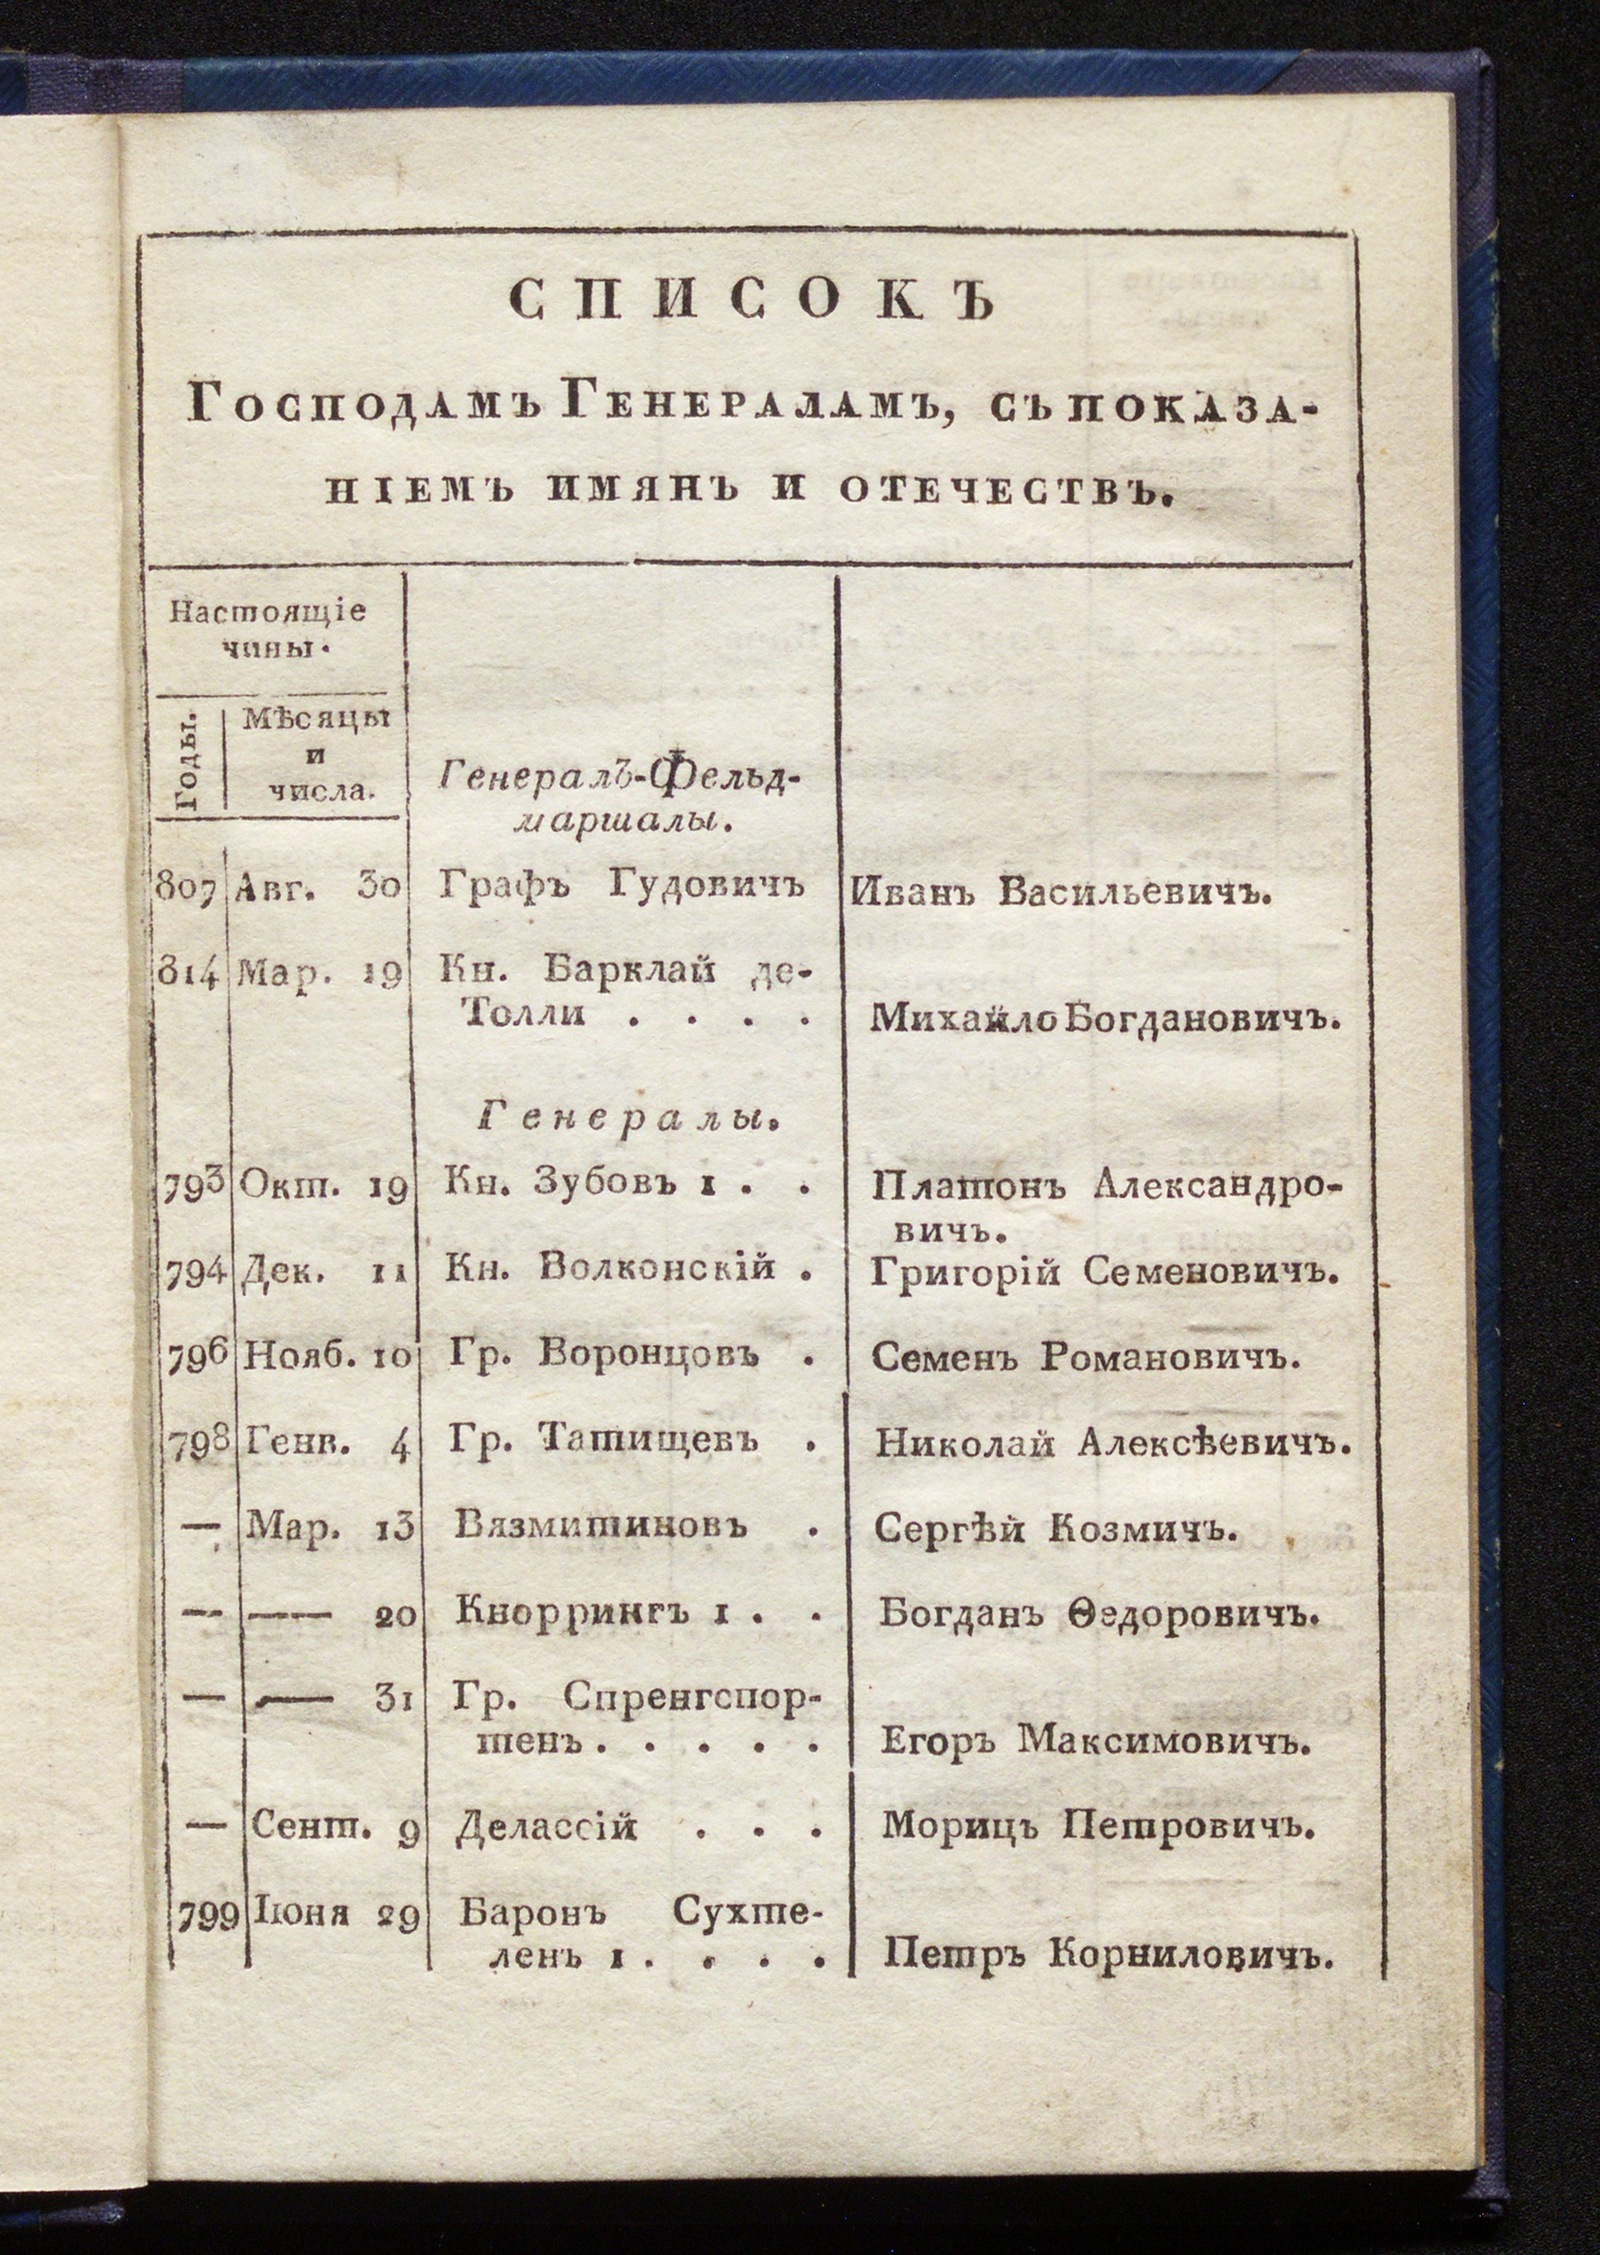 СПИСОКЪ
ГОСПОДАМЪ ГЕНЕРАЛАМЪ, СЪ ПОКАЗА-
НІЕМЪ ИМЯНЪ И ОТЕЧЕСТВЪ.
Настоящіе
чины.
Годы.
Мѣсяцы
и
числа.
Генералъ-Фельд-
маршалы.
807 Авг. 30 Графъ Гудовичъ Иванъ Васильевичъ.
814 Мар. 19 Кн. Барклай де-
Толли . . . . Михайло Богдановичъ.
Генералы.
793 Окт. 19 Кн. Зубовъ 1 . . Платонъ Александро-
вичъ.
794 Дек. 11 Кн. Волконскій . Григорій Семеновичъ.
796 Нояб. 10 Гр. Воронцовъ . Семенъ Романовичъ.
798 Генв. 4 Гр. Татищевъ . Николай Алексѣевичъ.
— Мар. 13 Вязмитиновъ . Сергѣй Козмичъ.
— — 20 Кноррингъ 1 . . Богданъ Ѳедоровичъ.
— — 31 Гр. Спренгспор-
тенъ . . . . . Егоръ Максимовичъ.
— Сент. 9 Делассій . . . Морицъ Петровичъ.
799 Іюня 29 Баронъ Сухте-
ленъ 1 . . . . Петръ Корниловичъ.